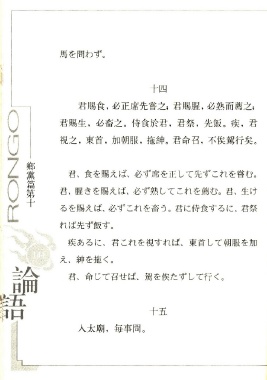 馬を問わず。
十四
君賜食,必正席先嘗之;君賜腥,必熟而薦之;
君賜生,必畜之。侍食於君,君祭,先飯。疾,君
視之,東首,加朝服,拖紳。君命召,不俟駕行矣。
君、食を賜えば、必ず席を正して先ずこれを嘗む。
君、腥きを賜えば、必ず熟してこれを薦む。君、生け
るを賜えば、必ずこれを畜う。君に侍食するに、君祭
れば先ず飯す。
疾あるに、君これを視すれば、東首して朝服を加
え、紳を拖く。
君、命じて召せば、駕を俟たずして行く。
十五
入太廟,毎事問。
RONGO
郷黨篇第十
論語